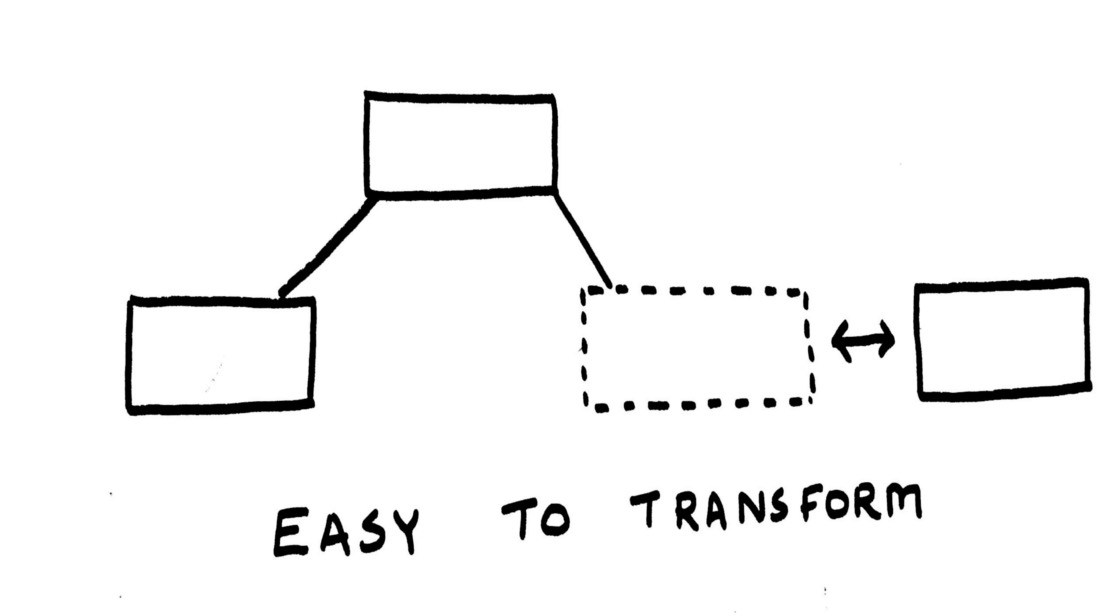 EASY TO TRANSFORM